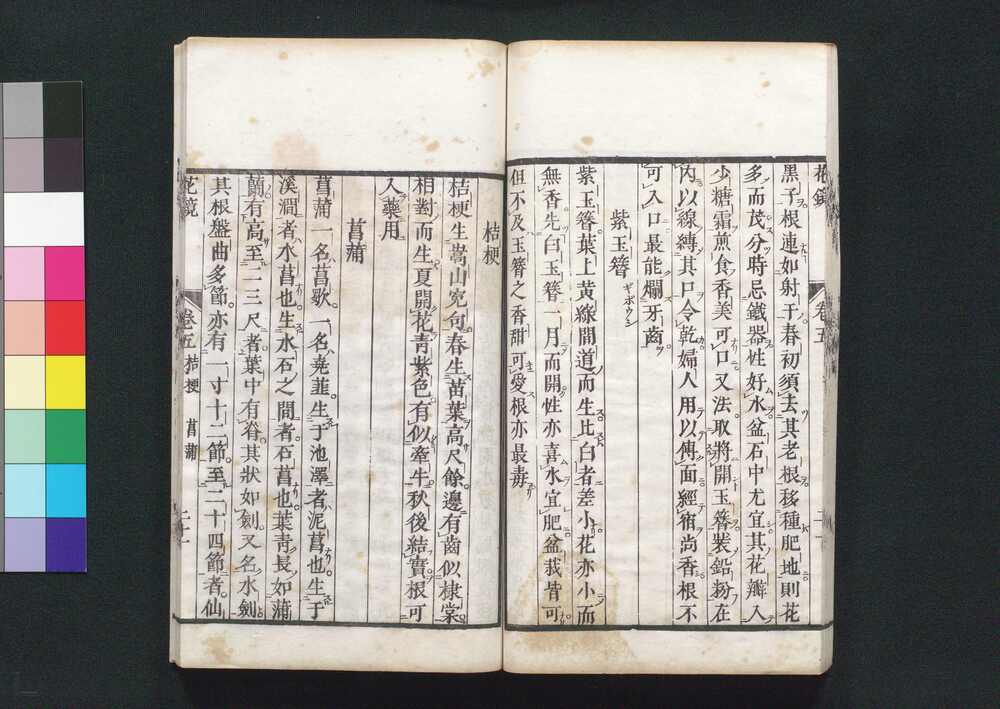 花鏡
卷五
黑子根連如射干春初須去其老根移種肥地則花
多而茂分時忌鐵器性好水盆石中尤宜其花瓣入
少糖霜煎食香美可口又法取將開玉簪裝鉛粉在
內以線縛其口令乾婦人用以傅面經宿尚香根不
可入口最能爛牙齒
紫玉簪ギボウシ
紫玉簪葉上黃綠間道而生比白者差小花亦小而
無香先白玉簪一月而開性亦喜水宜肥盆栽皆可
但不及玉簪之香甜可愛根亦最毒
桔梗
桔梗生嵩山宛句春生苗葉高尺餘邊有齒似棣棠
相對而生夏開花靑紫色有似牽牛秋後結實根可
入藥用
菖蒲
菖蒲一名菖歜一名堯韮生于池澤者泥菖也生于
溪澗者水菖也生水石之間者石菖也葉靑長如蒲
蘭有高至二三尺者葉中有脊其狀如劍又名水劍
其根盤曲多節亦有一寸十二節至二十四節者仙
花鏡
卷五 桔梗 菖蒲
二十一